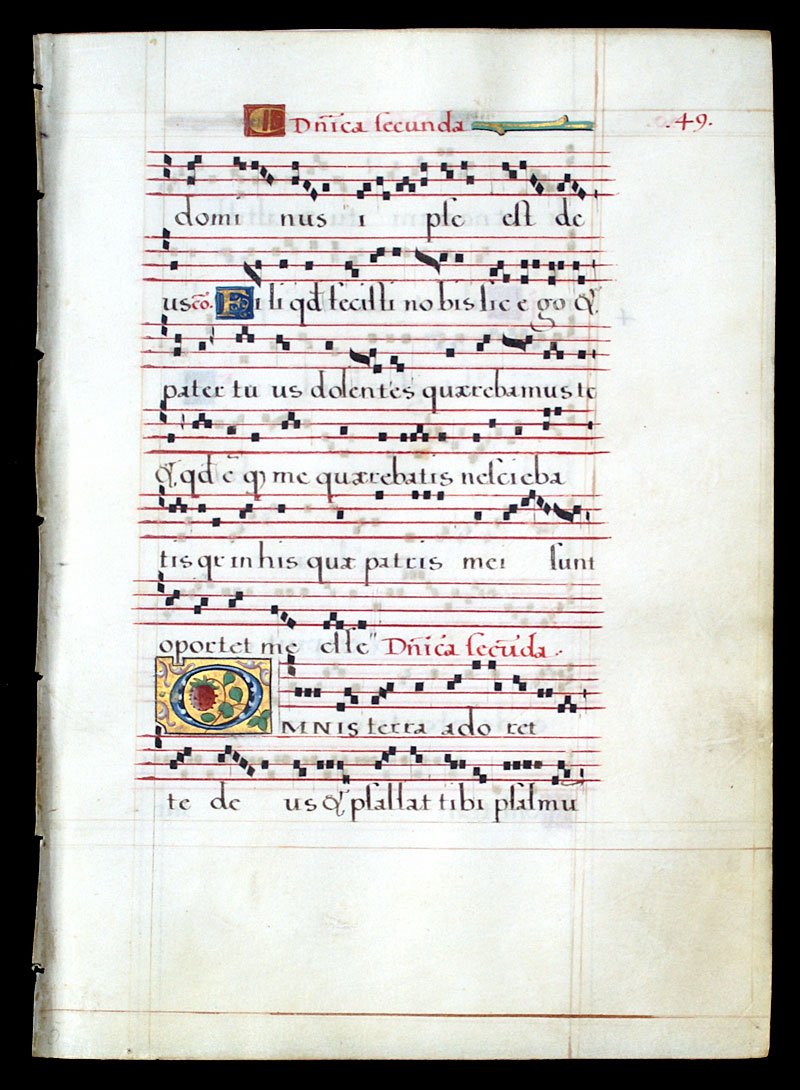 C Dñica secunda .49.
domi nus i pse est de
us cõ. Fi li qd fecisti no bis sic e go &
pater tu us dolentes quærebamus te
& qd ē qp me quærebatis nescieba
tis qr in his quæ patris mei sunt
oportet me esse Dñica secũda.
OMNIS terra ado ret
te de us & psallat tibi psalmu